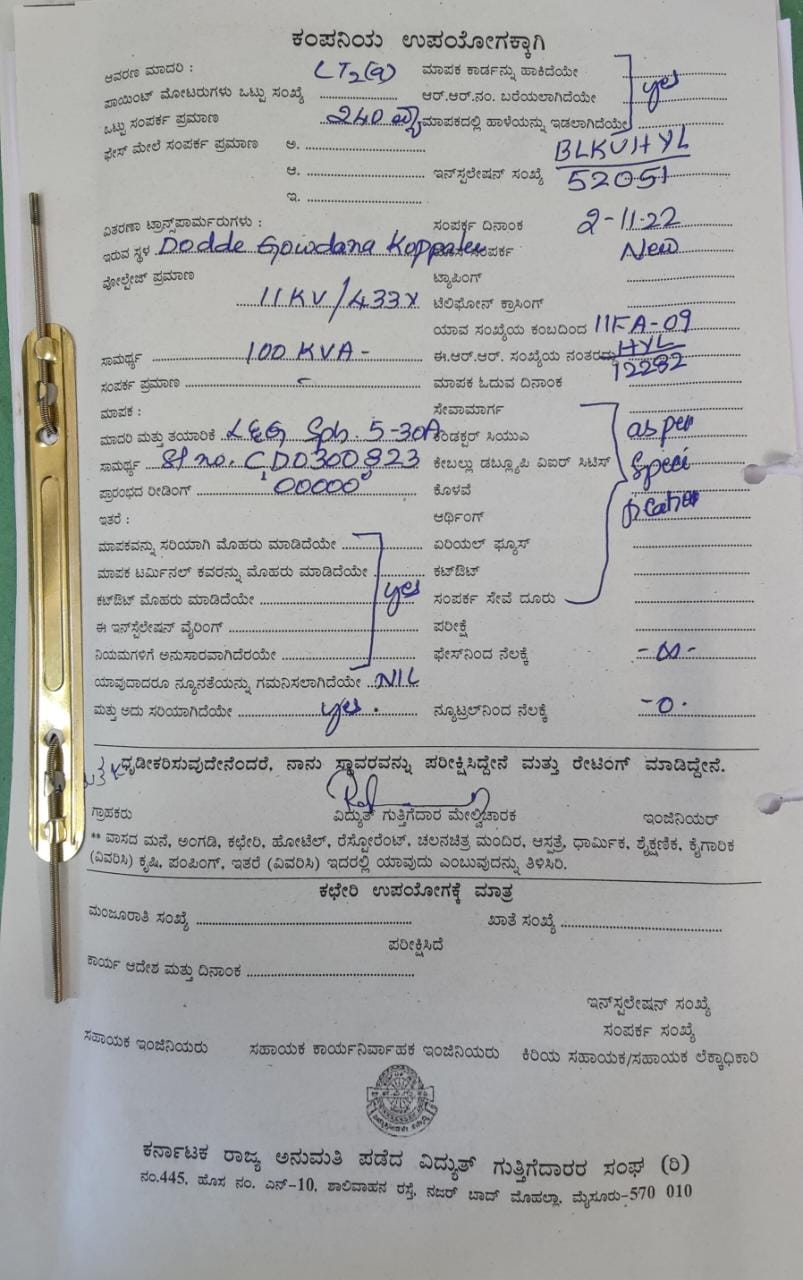 ಕಂಪನಿಯ ಉಪಯೋಗಕ್ಕಾಗಿ
ಆವರಣ ಮಾದರಿ : LT2(a) ಮಾಪಕ ಕಾರ್ಡನ್ನು ಹಾಕಿದೆಯೇ
ಪಾಯಿಂಟ್ ಮೋಟರುಗಳು ಒಟ್ಟು ಸಂಖ್ಯೆ ಆರ್.ಆರ್.ನಂ. ಬರೆಯಲಾಗಿದೆಯೇ yes
ಒಟ್ಟು ಸಂಪರ್ಕ ಪ್ರಮಾಣ 240 ಮಾಪಕದಲ್ಲಿ ಹಾಳೆಯನ್ನು ಇಡಲಾಗಿದೆಯೇ
ಫೇಸ್ ಮೇಲೆ ಸಂಪರ್ಕ ಪ್ರಮಾಣ ಅ. BLKVHYL
ಆ. ಇನ್‌ಸ್ಟಲೇಷನ್ ಸಂಖ್ಯೆ 52051
ಇ.
ವಿತರಣಾ ಟ್ರಾನ್ಸ್‌ಪಾರ್ಮರುಗಳು : ಸಂಪರ್ಕ ದಿನಾಂಕ 2-11-22
ಇರುವ ಸ್ಥಳ Dodde Gowdana Koppalu ಸಂಪರ್ಕ New
ವೋಲ್ಟೇಜ್ ಪ್ರಮಾಣ ಟ್ಯಾಪಿಂಗ್
11KV/433V ಟೆಲಿಫೋನ್ ಕ್ರಾಸಿಂಗ್
ಯಾವ ಸಂಖ್ಯೆಯ ಕಂಬದಿಂದ 11FA-09
ಸಾಮರ್ಥ್ಯ 100 KVA- ಈ.ಆರ್.ಆರ್. ಸಂಖ್ಯೆಯ ನಂತರದ್ದು HYL
12282
ಸಂಪರ್ಕ ಪ್ರಮಾಣ - ಮಾಪಕ ಓದುವ ದಿನಾಂಕ
ಮಾಪಕ : ಸೇವಾಮಾರ್ಗ
ಮಾದರಿ ಮತ್ತು ತಯಾರಿಕೆ L&G Sph. 5-30A ಕಂಡಕ್ಟರ್ ಸಿಯುಎ as per
ಸಾಮರ್ಥ್ಯ Sl no. CD0300823 ಕೇಬಲ್ಲು ಡಬ್ಲ್ಯೂಪಿ ವಿಐರ್ ಸಿಟಿಸ್ Speci
ಪ್ರಾರಂಭದ ರೀಡಿಂಗ್ "00000" ಕೊಳವೆ
ಇತರೆ : ಆರ್ಥಿಂಗ್ fication
ಮಾಪಕವನ್ನು ಸರಿಯಾಗಿ ಮೊಹರು ಮಾಡಿದೆಯೇ ಏರಿಯಲ್ ಫ್ಯೂಸ್
ಮಾಪಕ ಟರ್ಮಿನಲ್ ಕವರನ್ನು ಮೊಹರು ಮಾಡಿದೆಯೇ ಕಟ್‌ಔಟ್
ಕಟ್‌ಔಟ್ ಮೊಹರು ಮಾಡಿದೆಯೇ yes ಸಂಪರ್ಕ ಸೇವೆ ದೂರು
ಈ ಇನ್‌ಸ್ಟಲೇಷನ್ ವೈರಿಂಗ್ ಪರೀಕ್ಷೆ
ನಿಯಮಗಳಿಗೆ ಅನುಸಾರವಾಗಿದೆರಯೇ ಫೇಸ್‌ನಿಂದ ನೆಲಕ್ಕೆ -∞-
ಯಾವುದಾದರೂ ನ್ಯೂನತೆಯನ್ನು ಗಮನಿಸಲಾಗಿದೆಯೇ NIL
ಮತ್ತು ಅದು ಸರಿಯಾಗಿದೆಯೇ yes. ನ್ಯೂಟ್ರಲ್‌ನಿಂದ ನೆಲಕ್ಕೆ -0.
ಧೃಡೀಕರಿಸುವುದೇನೆಂದರೆ, ನಾನು ಸ್ಥಾವರವನ್ನು ಪರೀಕ್ಷಿಸಿದ್ದೇನೆ ಮತ್ತು ರೇಟಿಂಗ್ ಮಾಡಿದ್ದೇನೆ.
ಗ್ರಾಹಕರು ವಿದ್ಯುತ್ ಗುತ್ತಿಗೆದಾರ ಮೇಲ್ವಿಚಾರಕ ಇಂಜಿನಿಯರ್
** ವಾಸದ ಮನೆ, ಅಂಗಡಿ, ಕಛೇರಿ, ಹೋಟೆಲ್, ರೆಸ್ಟೋರೆಂಟ್, ಚಲನಚಿತ್ರ ಮಂದಿರ, ಆಸ್ಪತ್ರೆ, ಧಾರ್ಮಿಕ, ಶೈಕ್ಷಣಿಕ, ಕೈಗಾರಿಕ
(ವಿವರಿಸಿ) ಕೃಷಿ, ಪಂಪಿಂಗ್, ಇತರೆ (ವಿವರಿಸಿ) ಇದರಲ್ಲಿ ಯಾವುದು ಎಂಬುವುದನ್ನು ತಿಳಿಸಿರಿ.
ಕಛೇರಿ ಉಪಯೋಗಕ್ಕೆ ಮಾತ್ರ
ಮಂಜೂರಾತಿ ಸಂಖ್ಯೆ ಖಾತೆ ಸಂಖ್ಯೆ
ಪರೀಕ್ಷಿಸಿದೆ
ಕಾರ್ಯ ಆದೇಶ ಮತ್ತು ದಿನಾಂಕ
ಇನ್‌ಸ್ಪಲೇಷನ್ ಸಂಖ್ಯೆ
ಸಂಪರ್ಕ ಸಂಖ್ಯೆ
ಸಹಾಯಕ ಇಂಜಿನಿಯರು ಸಹಾಯಕ ಕಾರ್ಯನಿರ್ವಾಹಕ ಇಂಜಿನಿಯರು ಕಿರಿಯ ಸಹಾಯಕ/ಸಹಾಯಕ ಲೆಕ್ಕಾಧಿಕಾರಿ
ಕರ್ನಾಟಕ ರಾಜ್ಯ ಅನುಮತಿ ಪಡೆದ ವಿದ್ಯುತ್ ಗುತ್ತಿಗೆದಾರರ ಸಂಘ (ರಿ)
ನಂ.445, ಹೊಸ ನಂ. ಎನ್-10, ಶಾಲಿವಾಹನ ರಸ್ತೆ, ನಜರ್ ಬಾದ್ ಮೊಹಲ್ಲಾ, ಮೈಸೂರು-570 010